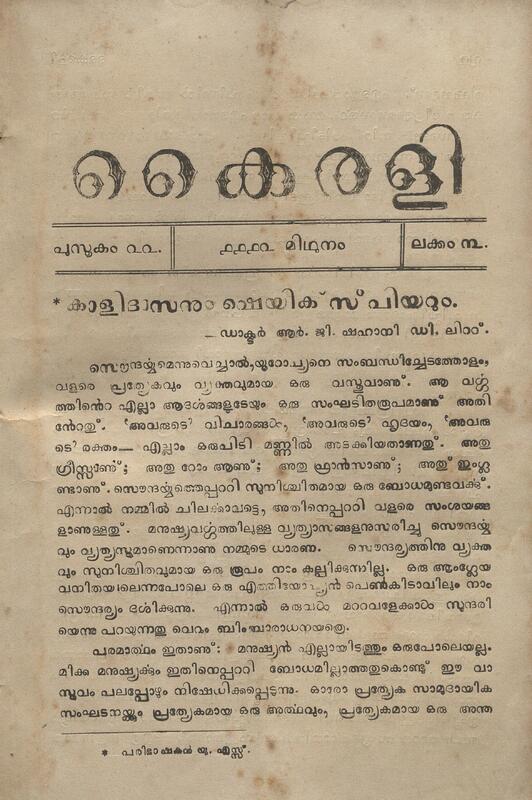 കൈരളി
പുസ്തകം ൨൨.
൧൧൧൨ മിഥുനം
ലക്കം ൩.
* കാളിദാസനും ഷെയിക്സ്പിയറും.
— ഡാക്ടർ ആർ. ജി. ഷഹാനി ഡി. ലിററ്.
സൌന്ദൎയ്യമെന്നുവെച്ചാൽ, യൂറോപ്യനെ സംബന്ധിച്ചേടത്തോളം,
വളരെ പ്രത്യേകവും വ്യക്തവുമായ ഒരു വസ്തുവാണ്. ആ വൎഗ്ഗ
ത്തിൻെറ എല്ലാ ആദൎശങ്ങളുടേയും ഒരു സംഘടിതരൂപമാണ് അതി
ൻേറത്. 'അവരുടെ' വിചാരങ്ങൾ, 'അവരുടെ' ഹൃദയം, 'അവരു
ടെ' രക്തം— എല്ലാം ഒരുപിടി മണ്ണിൽ അടക്കിയതാണത്. അതു
ഗ്രീസ്സാണ്; അതു റോം ആണ്; അതു ഫ്രാൻസാണ്; അത് ഇംഗ്ല
ണ്ടാണ്. സൌന്ദൎയ്യത്തെപ്പററി സുനിശ്ചിതമായ ഒരു ബോധമുണ്ടവൎക്ക്.
എന്നാൽ നമ്മിൽ ചിലൎക്കാവട്ടെ, അതിനെപ്പററി വളരെ സംശയങ്ങ
ളാണുള്ളത്. മനുഷ്യവൎഗ്ഗത്തിലുള്ള വ്യത്യാസങ്ങളനുസരിച്ചു സൌന്ദൎയ്യ
വും വ്യത്യസ്തമാണെന്നാണു നമ്മുടെ ധാരണ. സൌന്ദൎയ്യത്തിനു വ്യക്ത
വും സുനിശ്ചിതവുമായ ഒരു രൂപം നാം കല്പിക്കുന്നില്ല. ഒരു ആംഗ്ലേയ
വനിതയിലെന്നപോലെ ഒരു എത്തിയോപ്യൻ പെൺകിടാവിലും നാം
സൌന്ദൎയ്യം ദൎശിക്കുന്നു. എന്നാൽ ഒരുവൾ മററവളേക്കാൾ സുന്ദരി
യെന്നു പറയുന്നതു വെറും ബിംബാരാധനയത്രെ.
പരമാൎത്ഥം ഇതാണ്: മനുഷ്യൻ എല്ലായിടത്തും ഒരുപോലെയല്ല.
മിക്ക മനുഷ്യൎക്കും ഇതിനെപ്പററി ബോധമില്ലാത്തതുകൊണ്ട് ഈ വാ
സ്തവം പലപ്പോഴും നിഷേധിക്കപ്പെടുന്നു. ഓരോ പ്രത്യേക സാമുദായിക
സംഘടനയ്ക്കും പ്രത്യേകമായ ഒരു അൎത്ഥവും, പ്രത്യേകമായ ഒരു അന്ത
* പരിഭാഷകൻ യു. എസ്സ്.